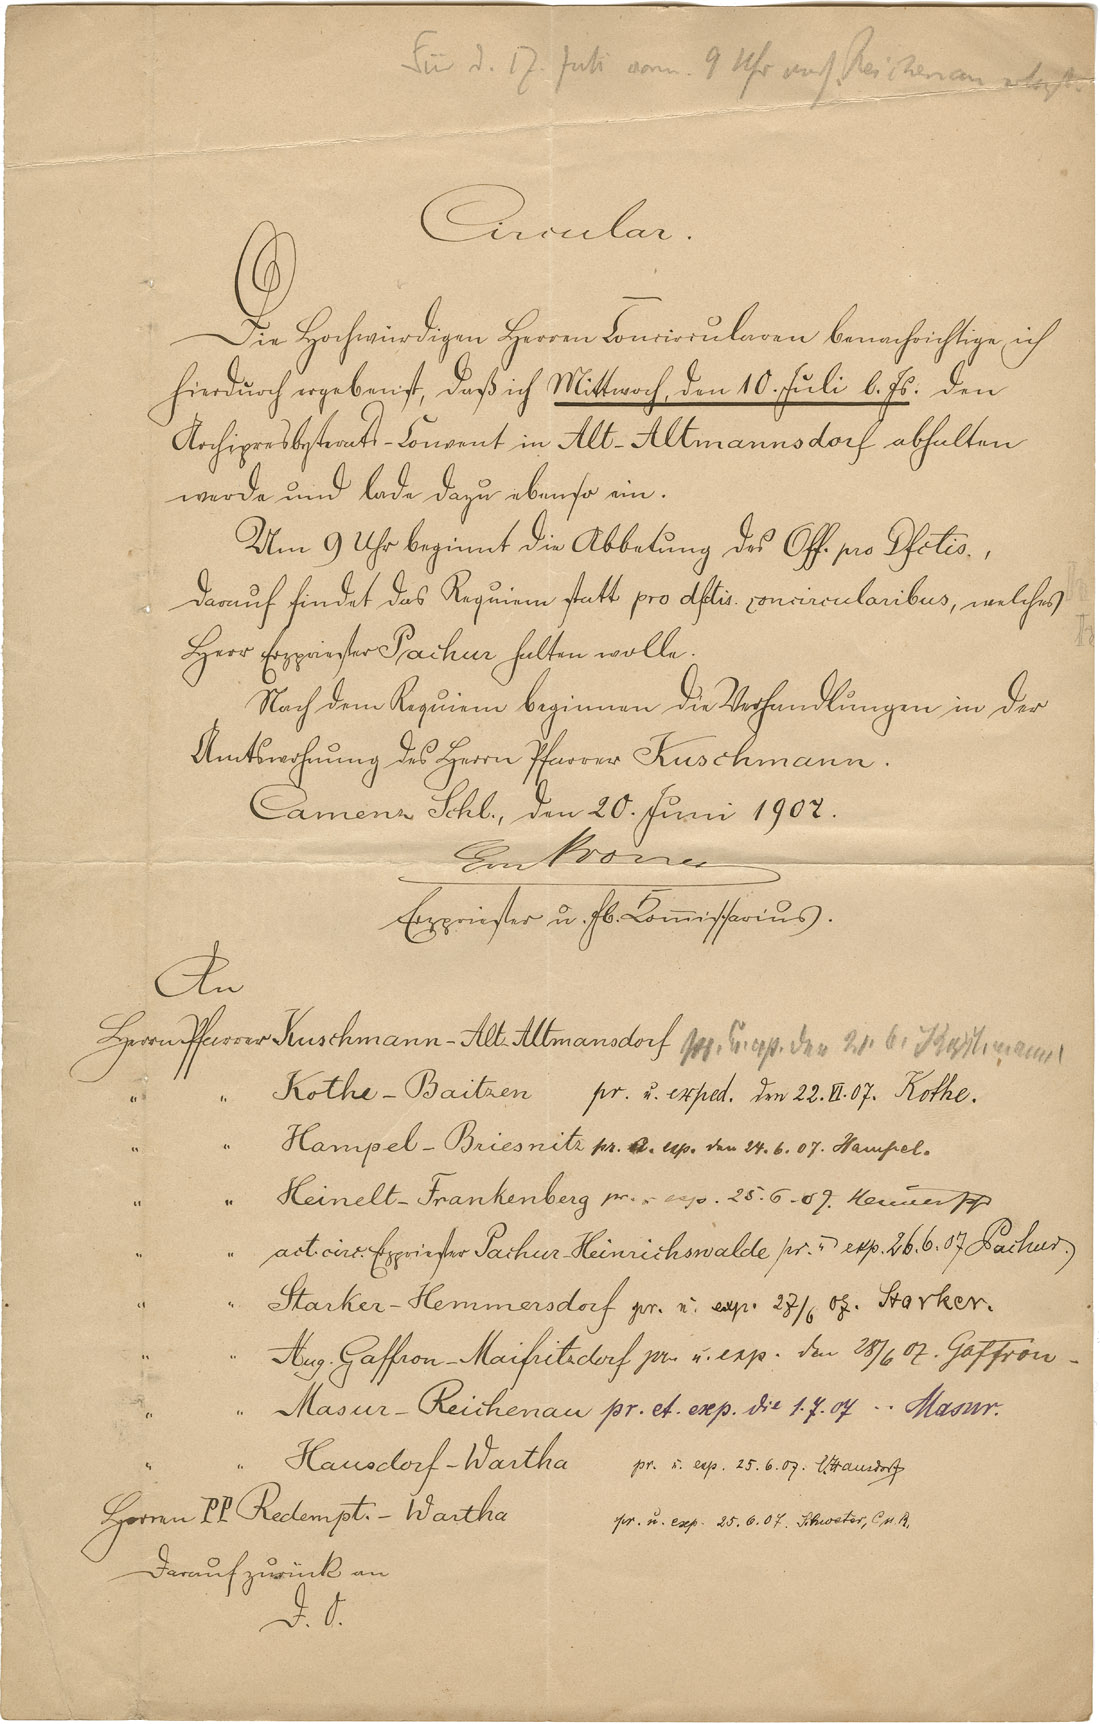 Für d. 17. Juli vorm. 9 Uhr nach Reichenau
Circular.
Die Hochwürdigen Herren Concircularen benachrichtige ich
hierdurch ergebenst, daß ich Mittwoch, den 10. Juli l. Js. den
Archipresbyterats-Convent in Alt-Altmannsdorf abhalten
werde und lade dazu ebenso ein.
Um 9 Uhr beginnt die Abbetung des Off. pro Dfctis.,
darauf findet das Requiem statt pro dfctis. concircularibus, welches
Herr Erzpriester Pachur halten wolle.
Nach dem Requiem beginnen die Verhandlungen in der
Amtswohnung des Herrn Pfarrer Kuschmann.
Camenz Schl., den 20. Juni 1907.
Erzpriester u. fb. Kommissarius.
An
Herrn Pfarrer Kuschmann-Alt Altmansdorf pr. u. exp. den 21. 6.
" " Kothe-Baitzen pr. u. exped. den 22. VI. 07. Kothe.
" " Hampel-Briesnitz pr. u. exp. den 24. 6. 07. Hampel.
" " Heinelt-Frankenberg pr. u. exp. 25. 6. 07.
" " act. circ. Erzpriester Pachur-Heinrichswalde pr. u. exp. 26. 6. 07 Pachur.
" " Starker-Hemmersdorf pr. u. exp. 27/6 07. Starker.
" " Aug. Gaffron-Maifritzdorf pr. u. exp. den 28/6 07. Gaffron
" " Masur-Reichenau pr. et. exp. die 1. 7. 07 Masur.
" " Hausdorf-Wartha pr. u. exp. 25. 6. 07. Hausdorf
Herren PP Redempt.-Wartha pr. u. exp. 25. 6. 07. Schweter, C. ss. R.
Darauf zurück an
D. O.